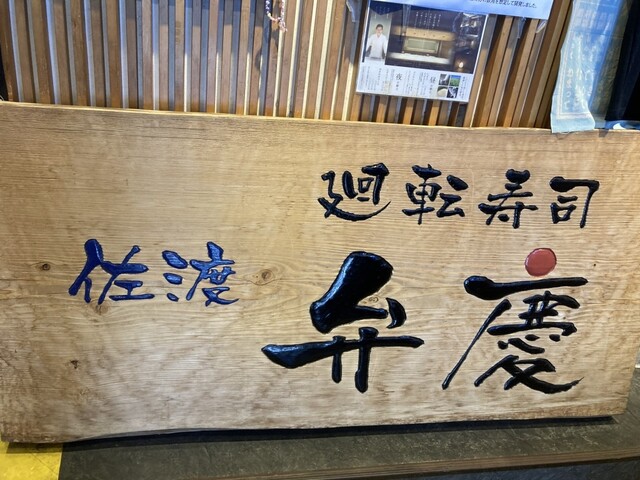 廻転寿司
佐渡 弁慶